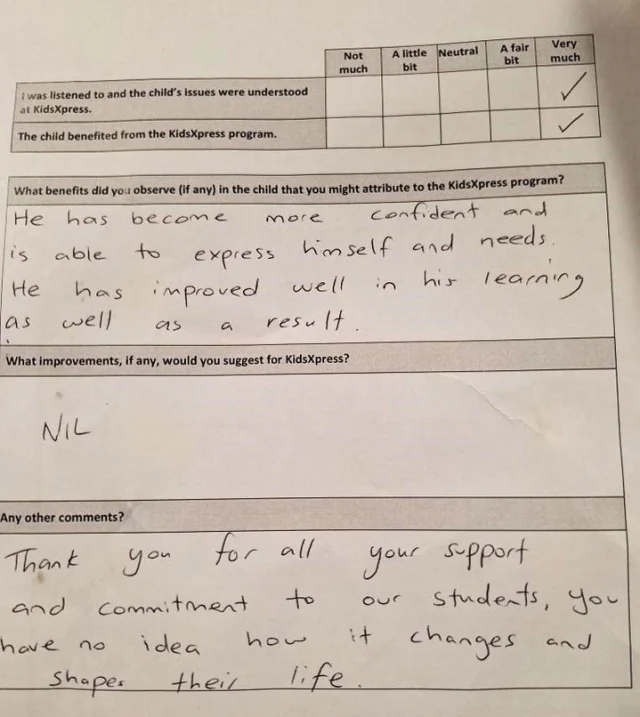 Not much A little bit Neutral A fair bit Very much
I was listened to and the child's issues were understood
at KidsXpress. ✓
The child benefited from the KidsXpress program. ✓
What benefits did you observe (if any) in the child that you might attribute to the KidsXpress program?
He has become more confident and
is able to express himself and needs.
He has improved well in his learning
as well as a result.
What improvements, if any, would you suggest for KidsXpress?
NIL
Any other comments?
Thank you for all your support
and commitment to our students, you
have no idea how it changes and
shapes their life.